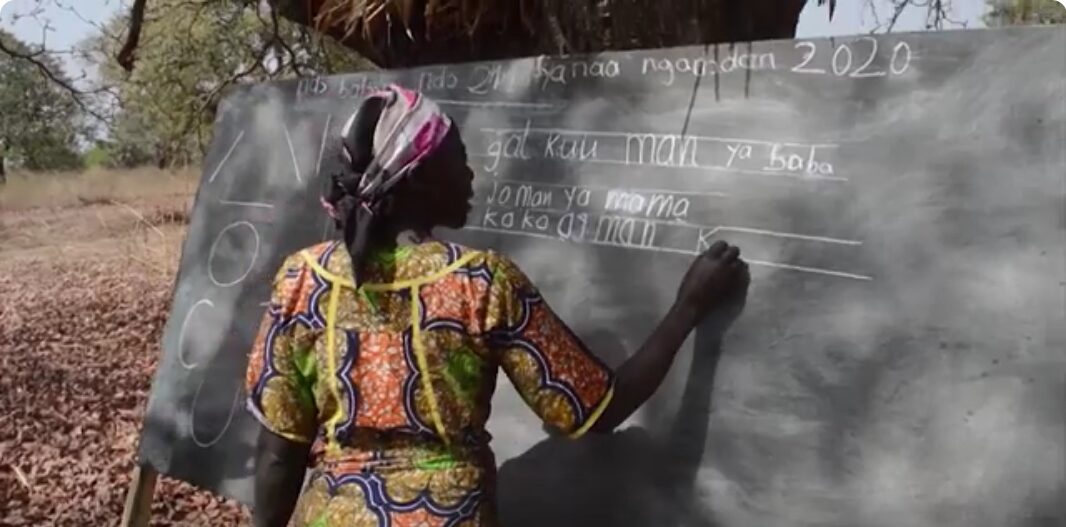 nds ndo 21 kanaa ngandan 2020
gal kuu man ya baba
Jo man ya mama
ko ko ag man K